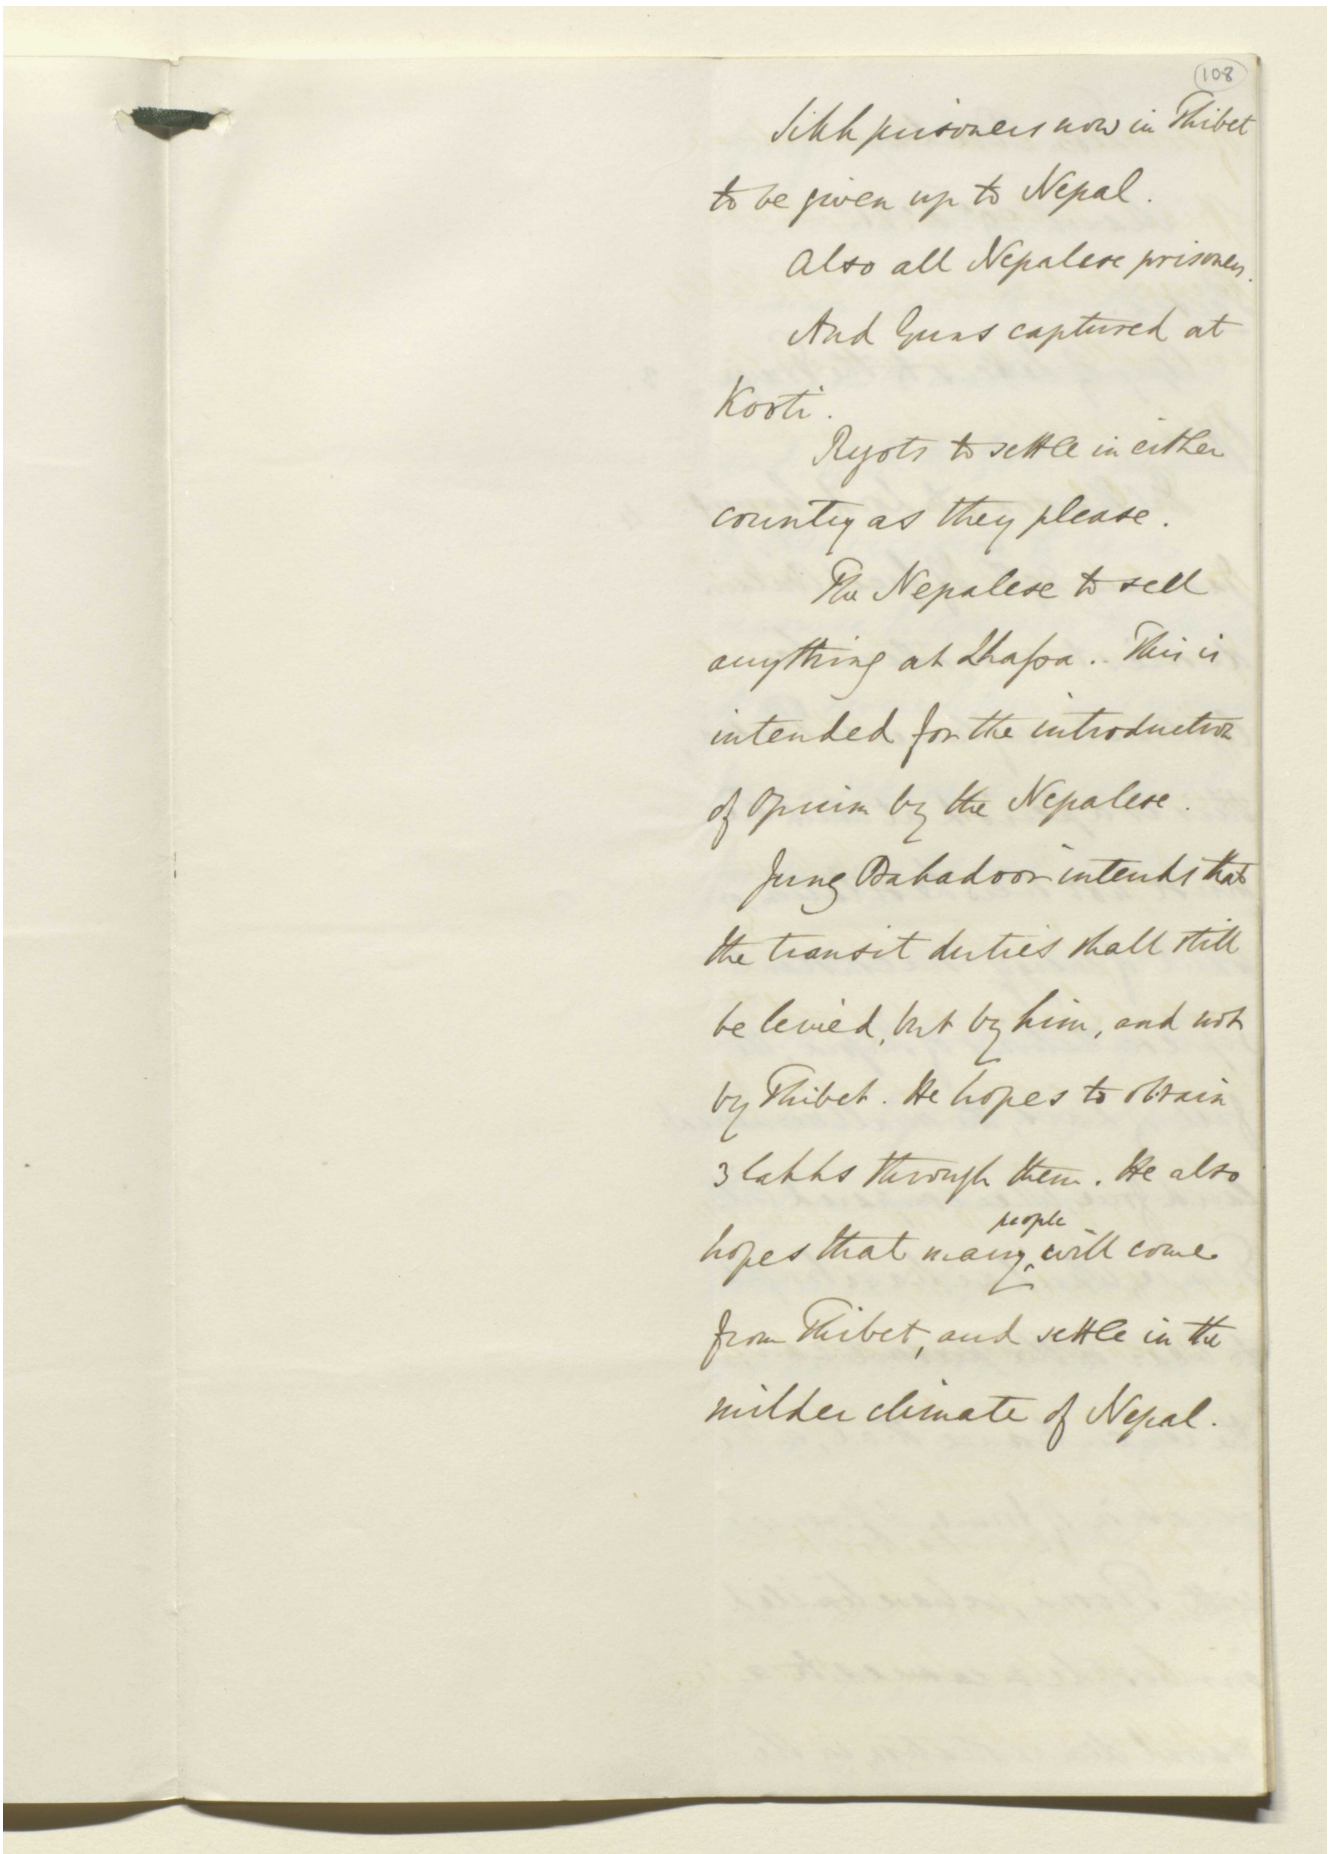 108
Sikh prisoners now in Thibet
to be given up to Nepal.
Also all Nepalese prisoners.
And Guns captured at
Kooti.
Ryots to settle in either
country as they please.
The Nepalese to sell
anything at Lhassa. This is
intended for the introduction
of Opium by the Nepalese.
Jung Bahadoor intends that
the transit duties shall still
be levied, but by him, and not
by Thibet. He hopes to obtain
3 lakhs through them. He also
people
hopes that many will come
from Thibet, and settle in the
milder climate of Nepal.